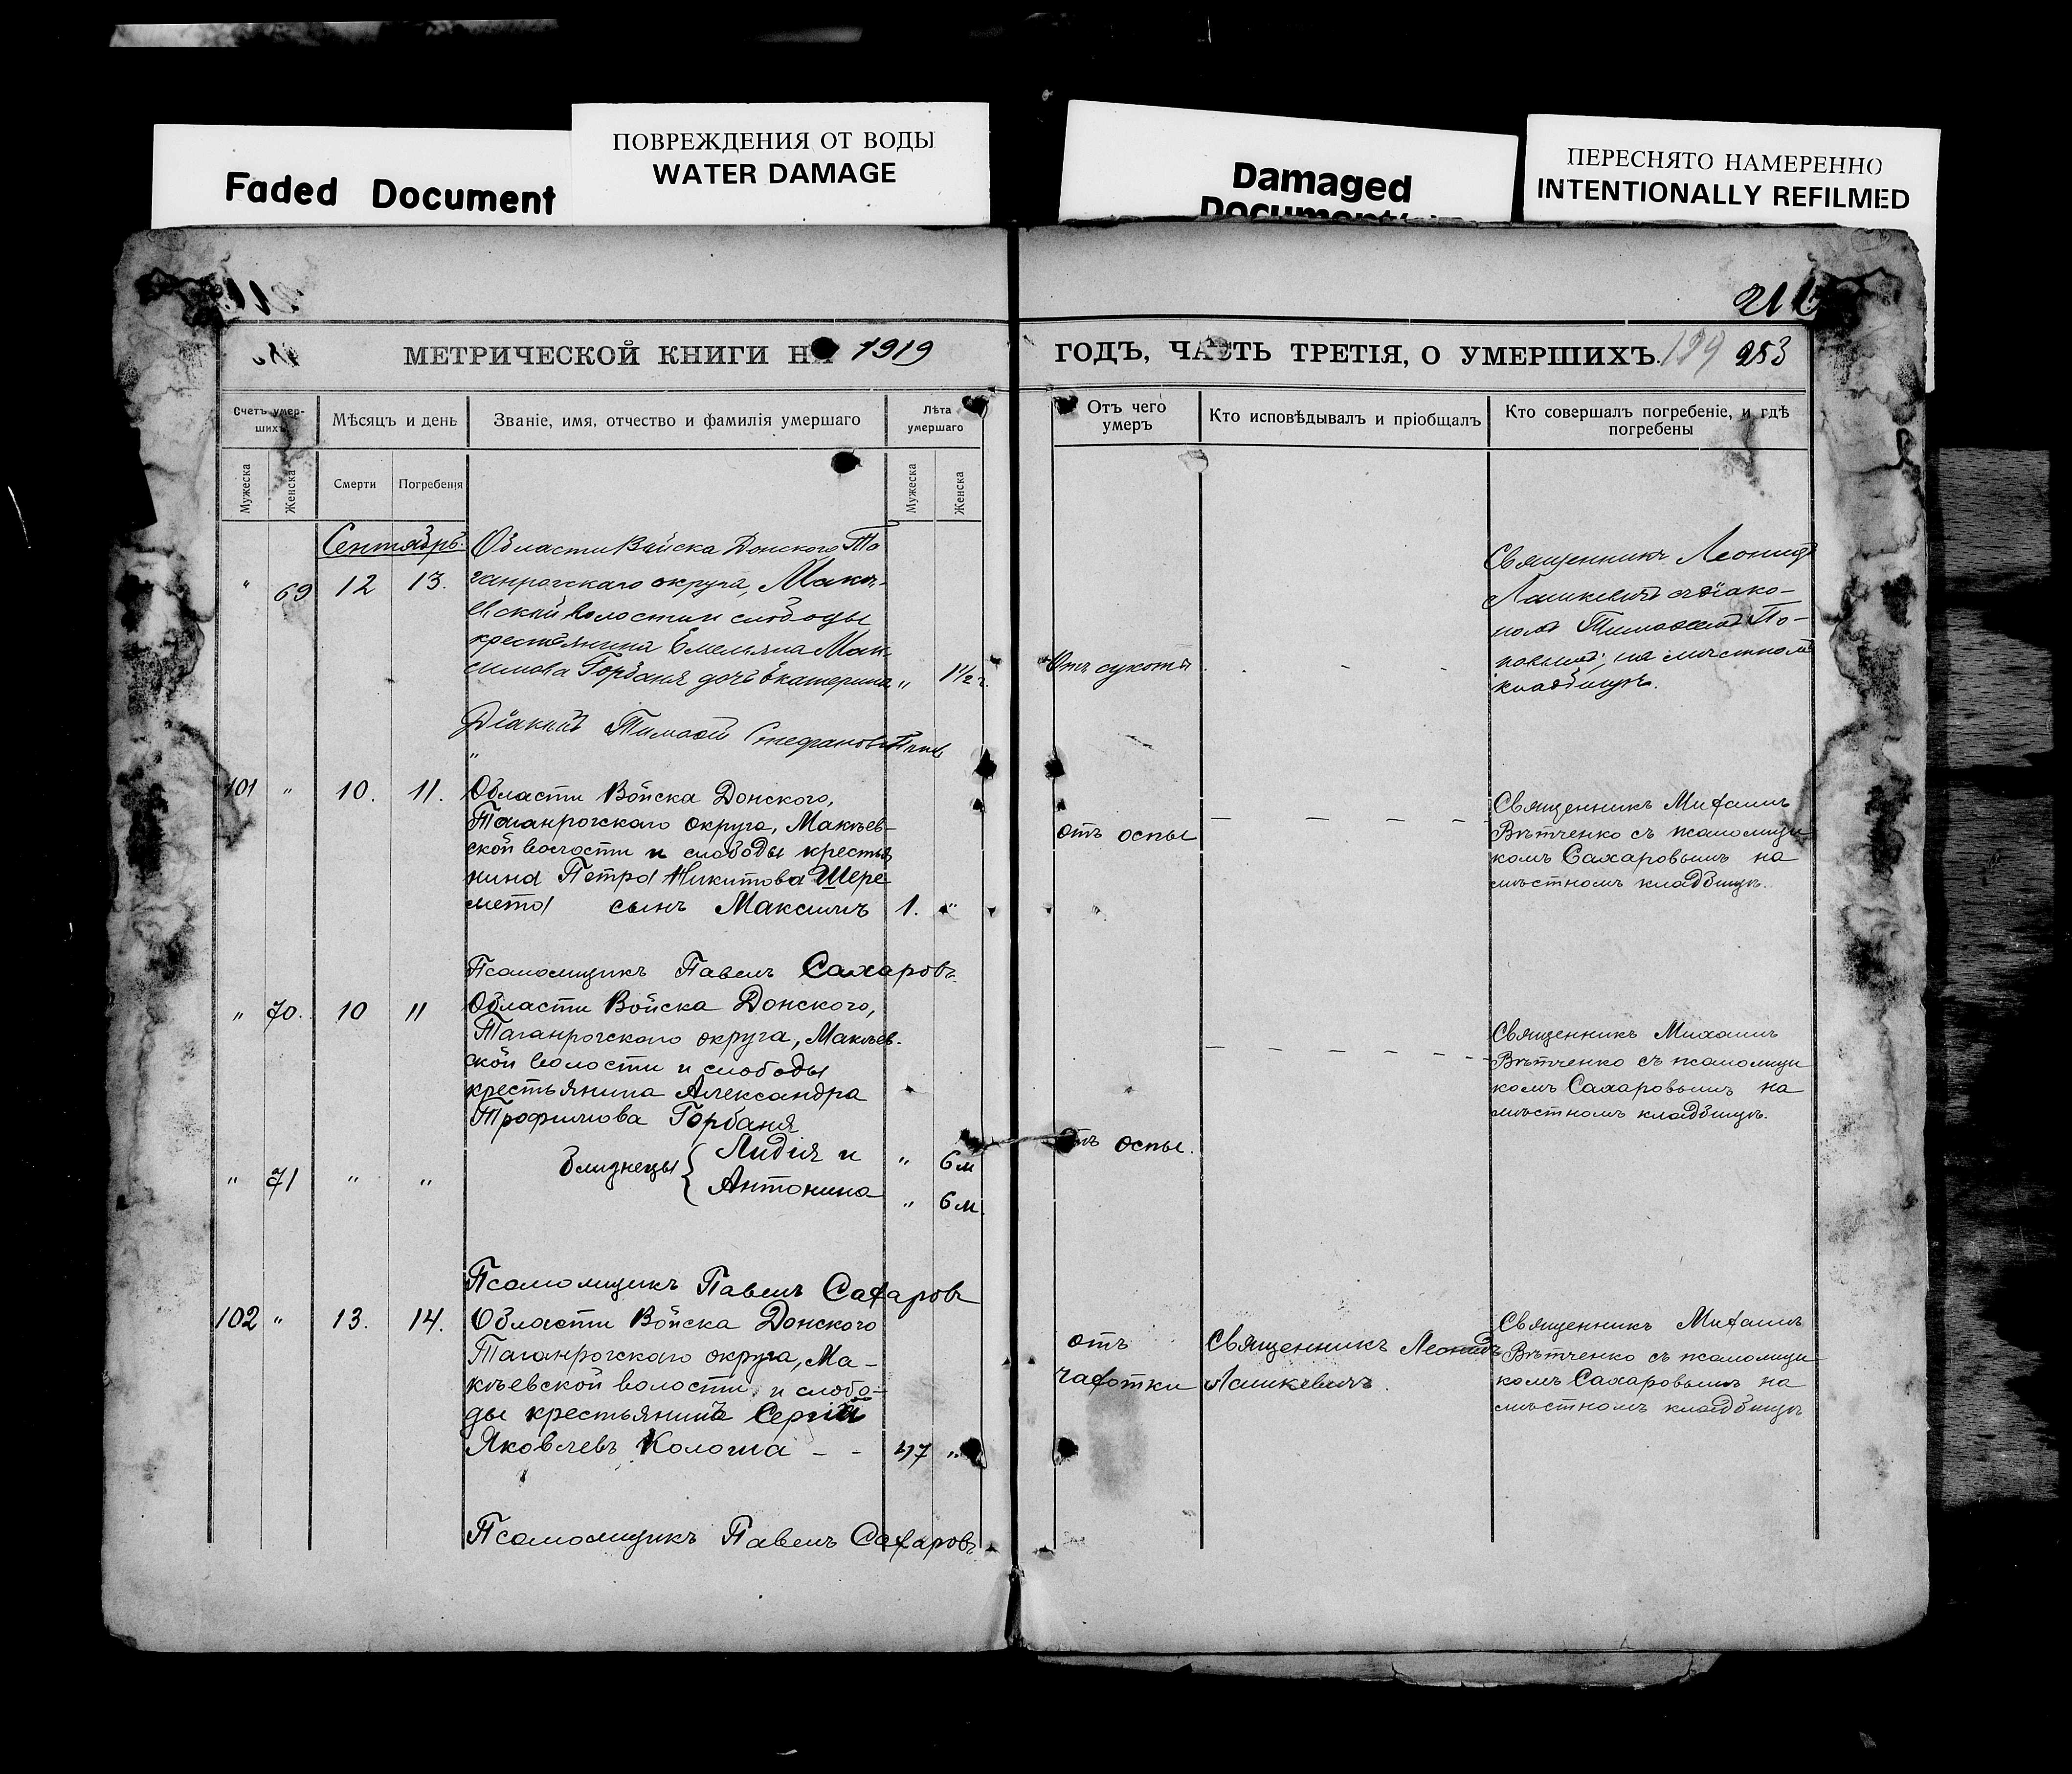 Faded Document
ПОВРЕЖДЕНИЯ ОТ ВОДЫ
WATER DAMAGE
Damaged
Document
ПЕРЕСНЯТО НАМЕРЕННО
INTENTIONALLY REFILMED
МЕТРИЧЕСКОЙ КНИГИ НА 1919
Счетъ умер-
шихъ
Мѣсяцъ и день
Званіе, имя, отчество и фамилія умершаго
Лѣта
умершаго
Мужеска
Женска
Смерти
Погребенія
Мужеска
Женска
Сентябрь.
" 69 12 13.
Области Войска Донского Та
ганрогскаго округа, Макѣ-
евской волости и слободы
крестьянина Емельяна Мак
симова Горбаня дочь Екатерина " 1½ г.
Діаконъ Тимоѳей Стефановъ
101 " 10. 11.
Области Войска Донского,
Таганрогскаго округа, Макѣев-
ской волости и слободы крестья
нина Петра Никитова Шере
мета сынъ Максимъ 1. "
Псаломщикъ Павелъ Сахаровъ.
" 70. 10 11
Области Войска Донского,
Таганрогскаго округа, Макѣев-
ской волости и слободы
крестьянина Александра
Трофимова Горбаня
близнецы { Лидія и " 6 м
" 71 " "
Антонина " 6 м.
Псаломщикъ Павелъ Сахаровъ
102 " 13. 14.
Области Войска Донского
Таганрогскаго округа, Ма-
кѣевской волости и слобо-
ды крестьянинъ Сергій
Яковлевъ Колома - - 47 "
Псаломщикъ Павелъ Сахаровъ
ГОДЪ, ЧАСТЬ ТРЕТІЯ, О УМЕРШИХЪ. 199 253
Отъ чего
умеръ
Кто исповѣдывалъ и пріобщалъ
Кто совершалъ погребеніе, и гдѣ
погребены
Отъ сухоты
Священникъ Леонидъ
Лашкевичъ съ діако-
номъ Тимоѳеемъ По-
повымъ, на мѣстномъ
кладбищѣ.
отъ оспы
Священникъ Михаилъ
Вѣтченко съ псаломщи
комъ Сахаровымъ на
мѣстномъ кладбищѣ.
отъ оспы.
Священникъ Михаилъ
Вѣтченко съ псаломщи
комъ Сахаровымъ на
мѣстномъ кладбищѣ.
отъ
чахотки
Священникъ Леонидъ
Лашкевичъ.
Священникъ Михаилъ
Вѣтченко съ псаломщи
комъ Сахаровымъ на
мѣстномъ кладбищѣ